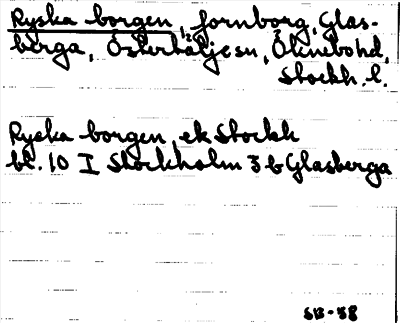 Ryska borgen, fornborg, Glas-
berga, Östertälje sn, Öknebo hd,
Stockh. l.
Ryska borgen, ek Stockh
bl. 10 I Stockholm 3 b Glasberga
SB-58